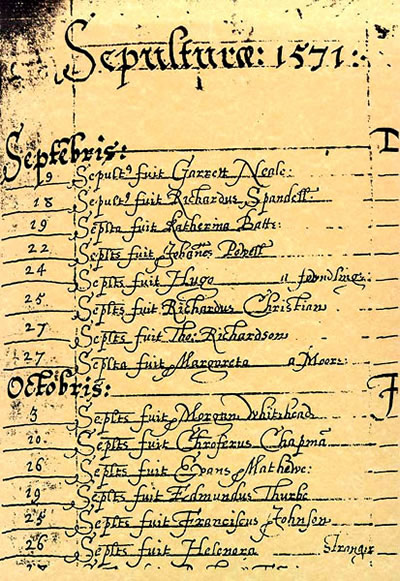 Sepulturæ: 1571:
Septēbris:
9 Sepult9 fuit Garrett Neale:
18 Sepult9 fuit Richardus Spandell:
19 Seplta fuit Katherina Batte:
22 Seplts fuit Johanēs Powell
24 Seplts fuit Hugo a foundling:
25 Seplts fuit Richardus Christian
27 Seplts fuit Tho: Richardson
27 Seplta fuit Margareta a Moore:
Octobris:
5 Seplts fuit Morgan Whitehead
10 Seplts fuit Chroferus Chapmā
16 Seplts fuit Evans Mathewe:
19 Seplts fuit Edmundus Thurbe
25 Seplts fuit Franciscus Johnson
26 Seplts fuit Helenora Stranger